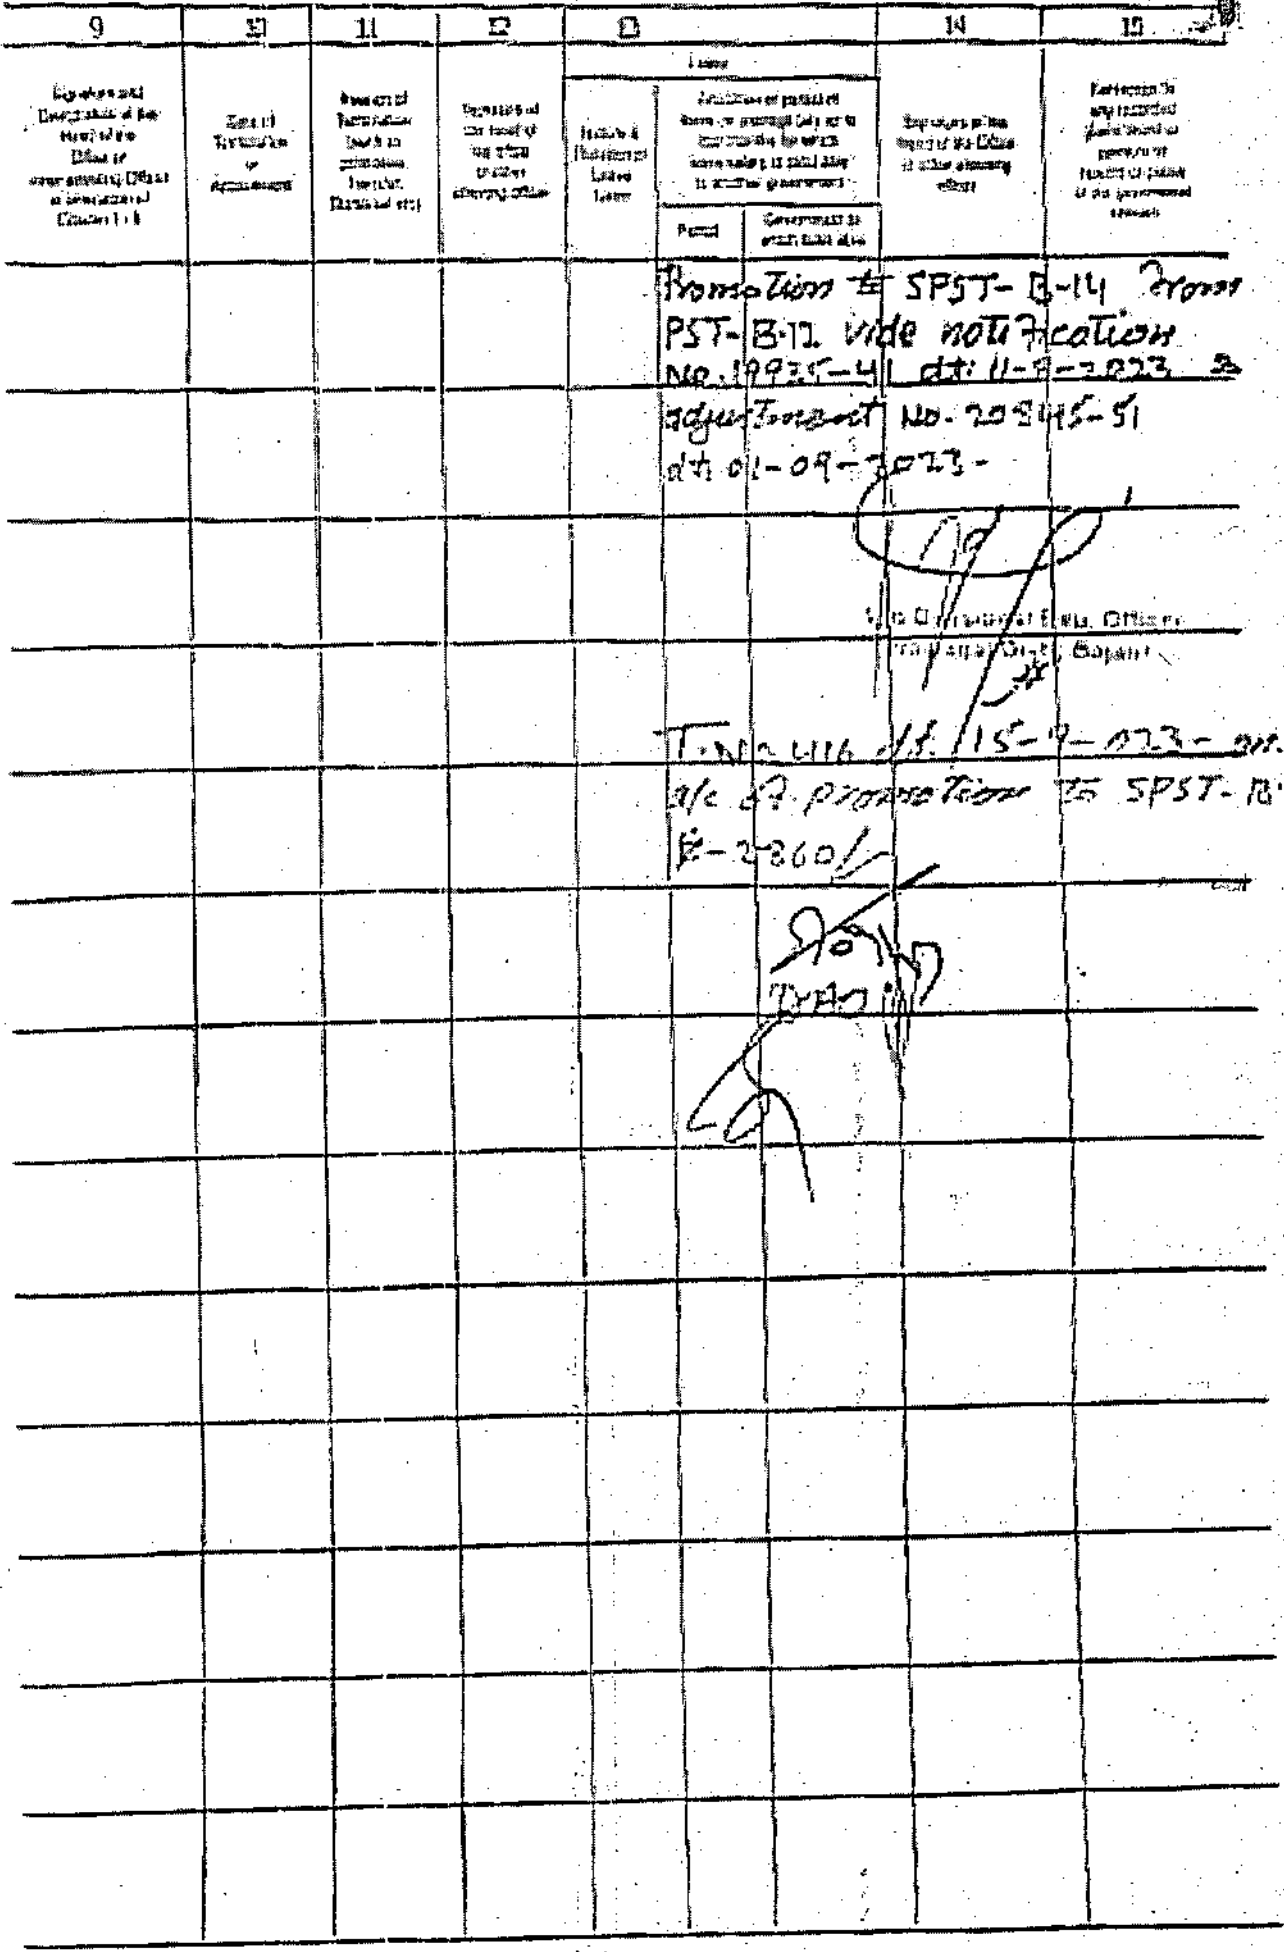 9 10 11 12 13 14 15
Leave
Signature and
Designation of the
Head of the
Office or
other attesting Officer
in attestation of
Columns 1 - 8
Date of
Termination
or
Appointment
Reason of
Termination
(such as
promotion,
transfer,
dismissal etc)
Signature of
the head of
the office
or other
attesting officer
Nature &
Duration of
Leave
Taken
Allocation of period of
leave on average pay up to
four months for which
leave salary is debitable
to another government
Period
Government to
which debitable
Signature of the
head of the Office
or other attesting
officer
Reference to
any recorded
punishment or
censure or
reward or praise
of the government
servant
Promotion to SPST-B-14 From
PST-B-12 vide notification
No. 19935-41 dt: 11-8-2023 &
adjustment No. 20845-51
dt: 01-09-2023-
Sub Divisional Edu. Officer
Bajaur
T.No 416 dt. 15-9-023- on
a/c of promotion to SPST-B
2860/-